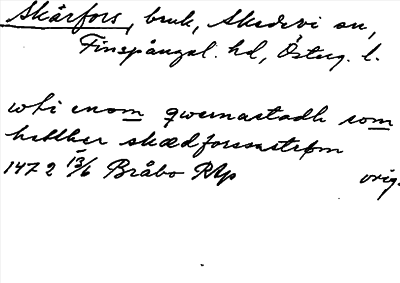 Skärfors, bruk, Skedevi sn,
Finspångal. hd, Österg. l.
wti enom qwernastadh som
hethher skædforssastrøm
1472 13/6 Bråbo Rtp orig.